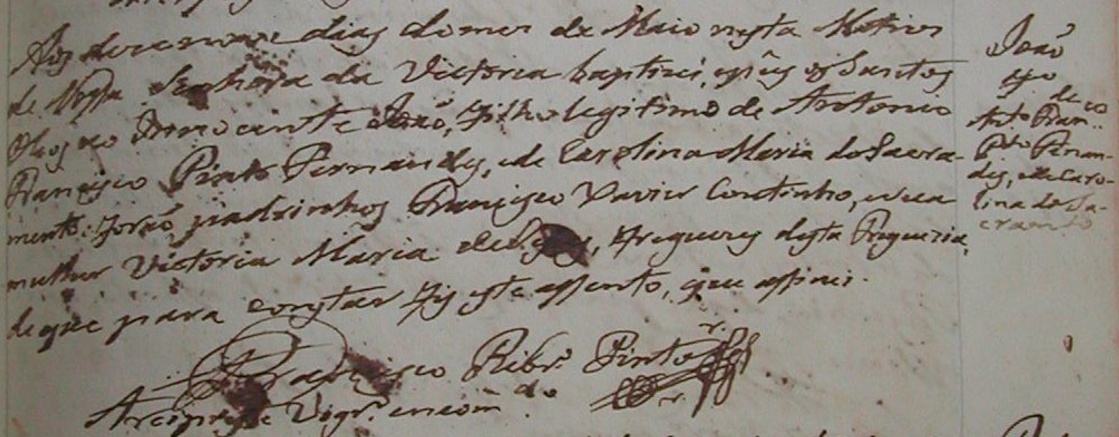 Aos desenove dias do mes de Maio nesta Matris
de Nossa Senhora da Victoria baptisei, e pus os Santos
Oleos ao Innocente João, filho legitimo de Antonio
Francisco Pinto Fernandes, e de Carolina Maria do Sacra-
mento: forão padrinhos Francisco Xavier Coutinho, e sua
mulher Victoria Maria de, Freguezes desta Freguezia,
de que para constar fiz este assento, que assinei.
Francisco Ribr.º Pinto
Arcipreste Vigr.º encom.do
João
fº de
Antº Fran.co
Pto Fernan-
des, e de Caro-
lina do Sa-
cramto